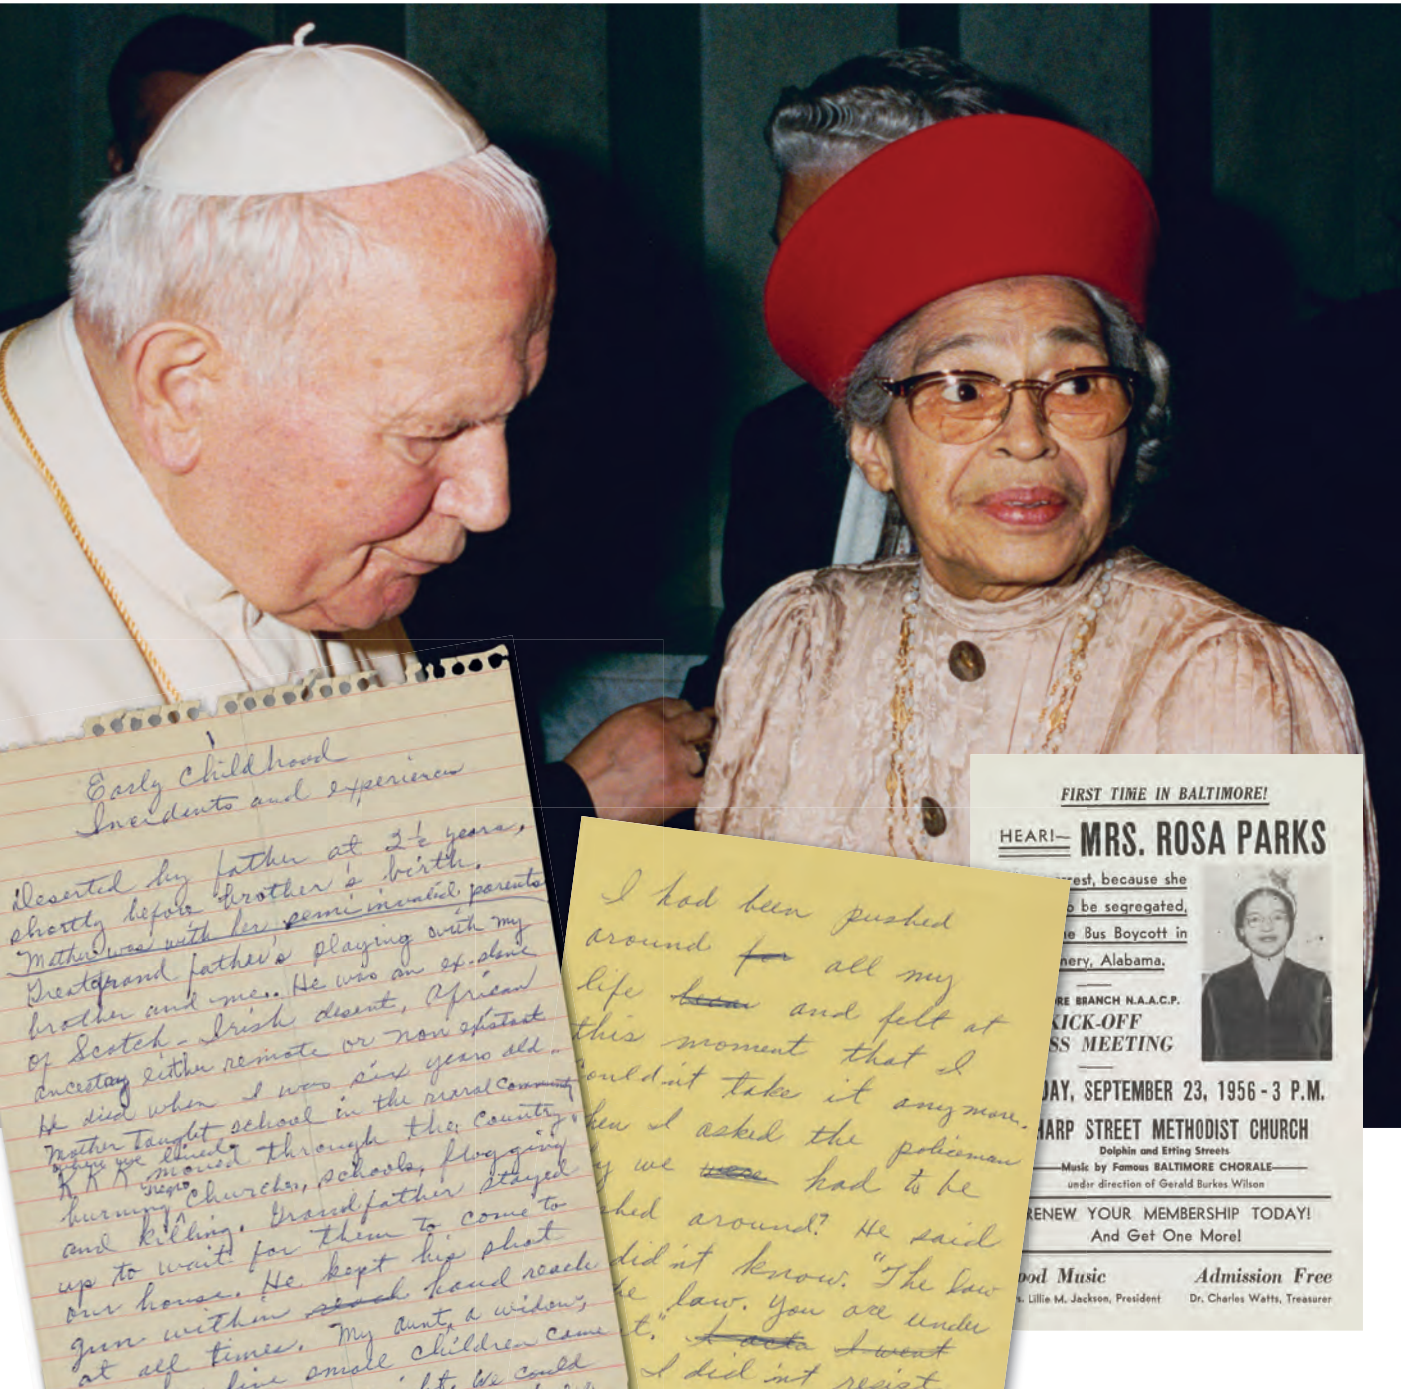 Early Childhood
Incidents and experiences
Deserted by father at 2½ years,
shortly before brother's birth.
Mother was with her semi invalid parents
Greatgrand father's playing with my
brother and me.. He was an ex. slave
of Scotch - Irish desent, African
ancestay either remote or non existant
He died when I was six years old.
Mother taught school in the rural community
where we lived.
KKK moved through the country,
burning negro churches, schools, flogging
and killing. Grandfather stayed
up to wait for them to come to
our house. He kept his shot
gun within reach hand reach
at all times. My aunt, a widow,
five small children came
We could
I had been pushed
around for all my
life been and felt at
this moment that I
couldn't take it anymore.
hen I asked the policeman
y we were had to be
shed around? He said
did'nt know. "The law
he law. You are under
t." I acta I went
I did'nt resist
FIRST TIME IN BALTIMORE!
HEAR!— MRS. ROSA PARKS
rest, because she
o be segregated,
e Bus Boycott in
ery, Alabama.
RE BRANCH N.A.A.C.P.
KICK-OFF
SS MEETING
DAY, SEPTEMBER 23, 1956 - 3 P.M.
HARP STREET METHODIST CHURCH
Dolphin and Etting Streets
Music by Famous BALTIMORE CHORALE
under direction of Gerald Burkes Wilson
RENEW YOUR MEMBERSHIP TODAY!
And Get One More!
ood Music Admission Free
s. Lillie M. Jackson, President Dr. Charles Watts, Treasurer